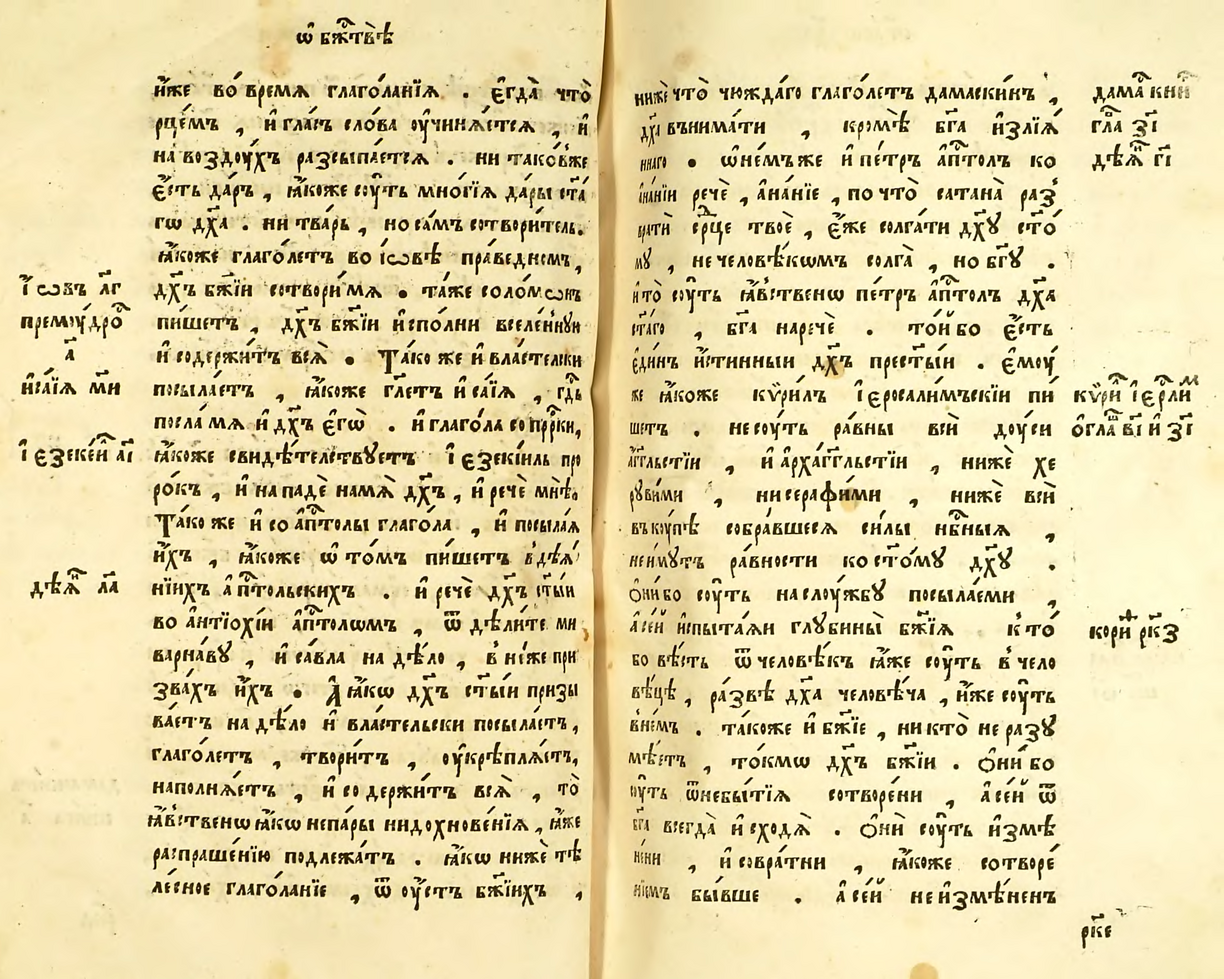 ѡ҆ бж҃твѣ
и҆́же во́ время глаго́ланїѧ . є҆гда̀ что̀
рце́мъ , и҆ гла́съ сло́ва ᲂу҆чинѧ́етсѧ , и҆
на воздꙋ́хъ разсыпа́етсѧ . ни тако́вже
є҆́сть да́ръ , ꙗ҆́коже сꙋ́ть мно́гїѧ да́ры ст҃а́
гѡ дх҃а . ни тва́рь , но са́мъ сотвори́тель.
ꙗ҆́коже глаго́летъ во і҆ѡвѣ пра́веднемъ,
дх҃ъ бж҃їи сотвори́ мѧ . та́же соломѡнъ
пи́шетъ , дх҃ъ бж҃їи и҆спо́лни вселе́ннꙋи
и҆ содержи́тъ всѧ̀ . Та́ко же и҆ вла́стелски
посыла́етъ , ꙗ҆́коже гл҃етъ и҆са́їѧ , гд҃ь
посла́ мѧ и҆ дх҃ъ є҆гѡ̀ . и҆ глаго́ла со прⷪ҇рки,
ꙗ҆́коже свидѣ́телствꙋетъ і҆езекі́иль про
ро́къ , и҆ на падѐ на мѧ̀ дх҃ъ , и҆ речѐ мнѣ̀.
Та́ко же и҆ со а҆пⷭ҇толы глаго́ла , и҆ посыла́ѧ
и҆́хъ , ꙗ҆́коже ѡ҆ то́мъ пи́шетъ в дѣѧ́
нїихъ а҆пⷭ҇тольскихъ . и҆ речѐ дх҃ъ ст҃ы́и
во а҆нтїохі́и а҆пⷭ҇толѡмъ , ѿ дѣли́те ми
варна́вꙋ , и҆ са́вла на дѣ́ло , в не́же при
зва́хъ и҆́хъ . А҆ ꙗ҆́кѡ дх҃ъ ст҃ы́и призы
ва́етъ на дѣ́ло и҆ вла́стельски посыла́етъ,
глаго́летъ , твори́тъ , ᲂу҆крѣплѧ́етъ,
наполнѧ́етъ , и҆ со держи́тъ всѧ̀ , то̀
ꙗ҆́вственѡ ꙗ҆́кѡ не па́ры ни дохнове́нїѧ , ꙗ҆́же
распраше́нїю подлежа́тъ . ꙗ҆́кѡ нижѐ тѣ
ле́сное глаго́ланїе , ѿ ᲂу҆́стъ бж҃їихъ ,
І҆́ѡвъ л҃г
премꙋдро
а҃
и҆са́їѧ м҃и
і҆езеке́и а҃і
дѣѧ҃ л҃а
нижѐ что̀ чю́ждаго глаго́летъ дамаски́нъ ,
дх҃а внима́ти , кро́мѣ бг҃а и҆злїѧ́
ннаго . ѡ҆ не́мъ же и҆ пе́тръ а҆пⷭ҇толъ ко
а҆на́нїи речѐ , а҆на́нїе , по что̀ сатана̀ раз
вратѝ срⷣце твоѐ , є҆́же солга́ти дх҃ꙋ ст҃о́
мꙋ , не человѣ́кѡмъ солга̀ , но бг҃ꙋ .
и҆ то̀ сꙋ́ть ꙗ҆́вственѡ пе́тръ а҆пⷭ҇толъ дх҃а
ст҃а́го , бг҃а наречѐ . то́и бо є҆́сть
є҆ди́нъ и҆́стинныи дх҃ъ прест҃ы́и . є҆мꙋ́
же ꙗ҆́коже кѷри́лъ і҆еросали́мъскїи пи́
шетъ . не сꙋ́ть ра́вны всѝ дꙋ́си
а҆́гг҃льстїи , и҆ а҆рха́гг҃льстїи , нижѐ хе
рꙋви́ми , ни серафи́ми , нижѐ всѝ
вкꙋ́пѣ собра́вшеесѧ си́лы нб҃ныѧ ,
не и҆мꙋ́тъ ра́вности ко ст҃о́мꙋ дх҃ꙋ .
Ѻ҆ни́ бо сꙋ́ть на слꙋ́жбꙋ посыла́еми ,
а҆ се́й и҆спыта́ѧи глꙋбины̀ бж҃їѧ кто̀
бо вѣ́сть ѿ человѣ́къ ꙗ҆́же сꙋ́ть в чело
вѣ́цѣ , ра́звѣ дх҃а человѣ́ча , и҆́же сꙋ́ть
в не́мъ . та́коже и҆ бж҃їе , никто̀ не разꙋ
мѣ́етъ , то́кмѡ дх҃ъ бж҃їи . Ѻ҆ни́ бо
сꙋ́ть ѿ небытїѧ̀ сотворе́ни , а҆ се́й ѿ
бг҃а всегда̀ и҆ сходѧ̀ . Ѻ҆нѝ сꙋ́ть и҆змѣ
не́ни , и҆ соврати́ни , ꙗ҆́коже сотворе́
нїемъ бы́вше . а҆ се́й не и҆змѣ́ненъ
дама́скин
гл҃а з҃і
дѣѧ҃ г҃і
кѷри і҆ерⷭ҇лим
ѻ҆гла в҃і и҆ з҃і
кори́н рк҃з
рк҃е